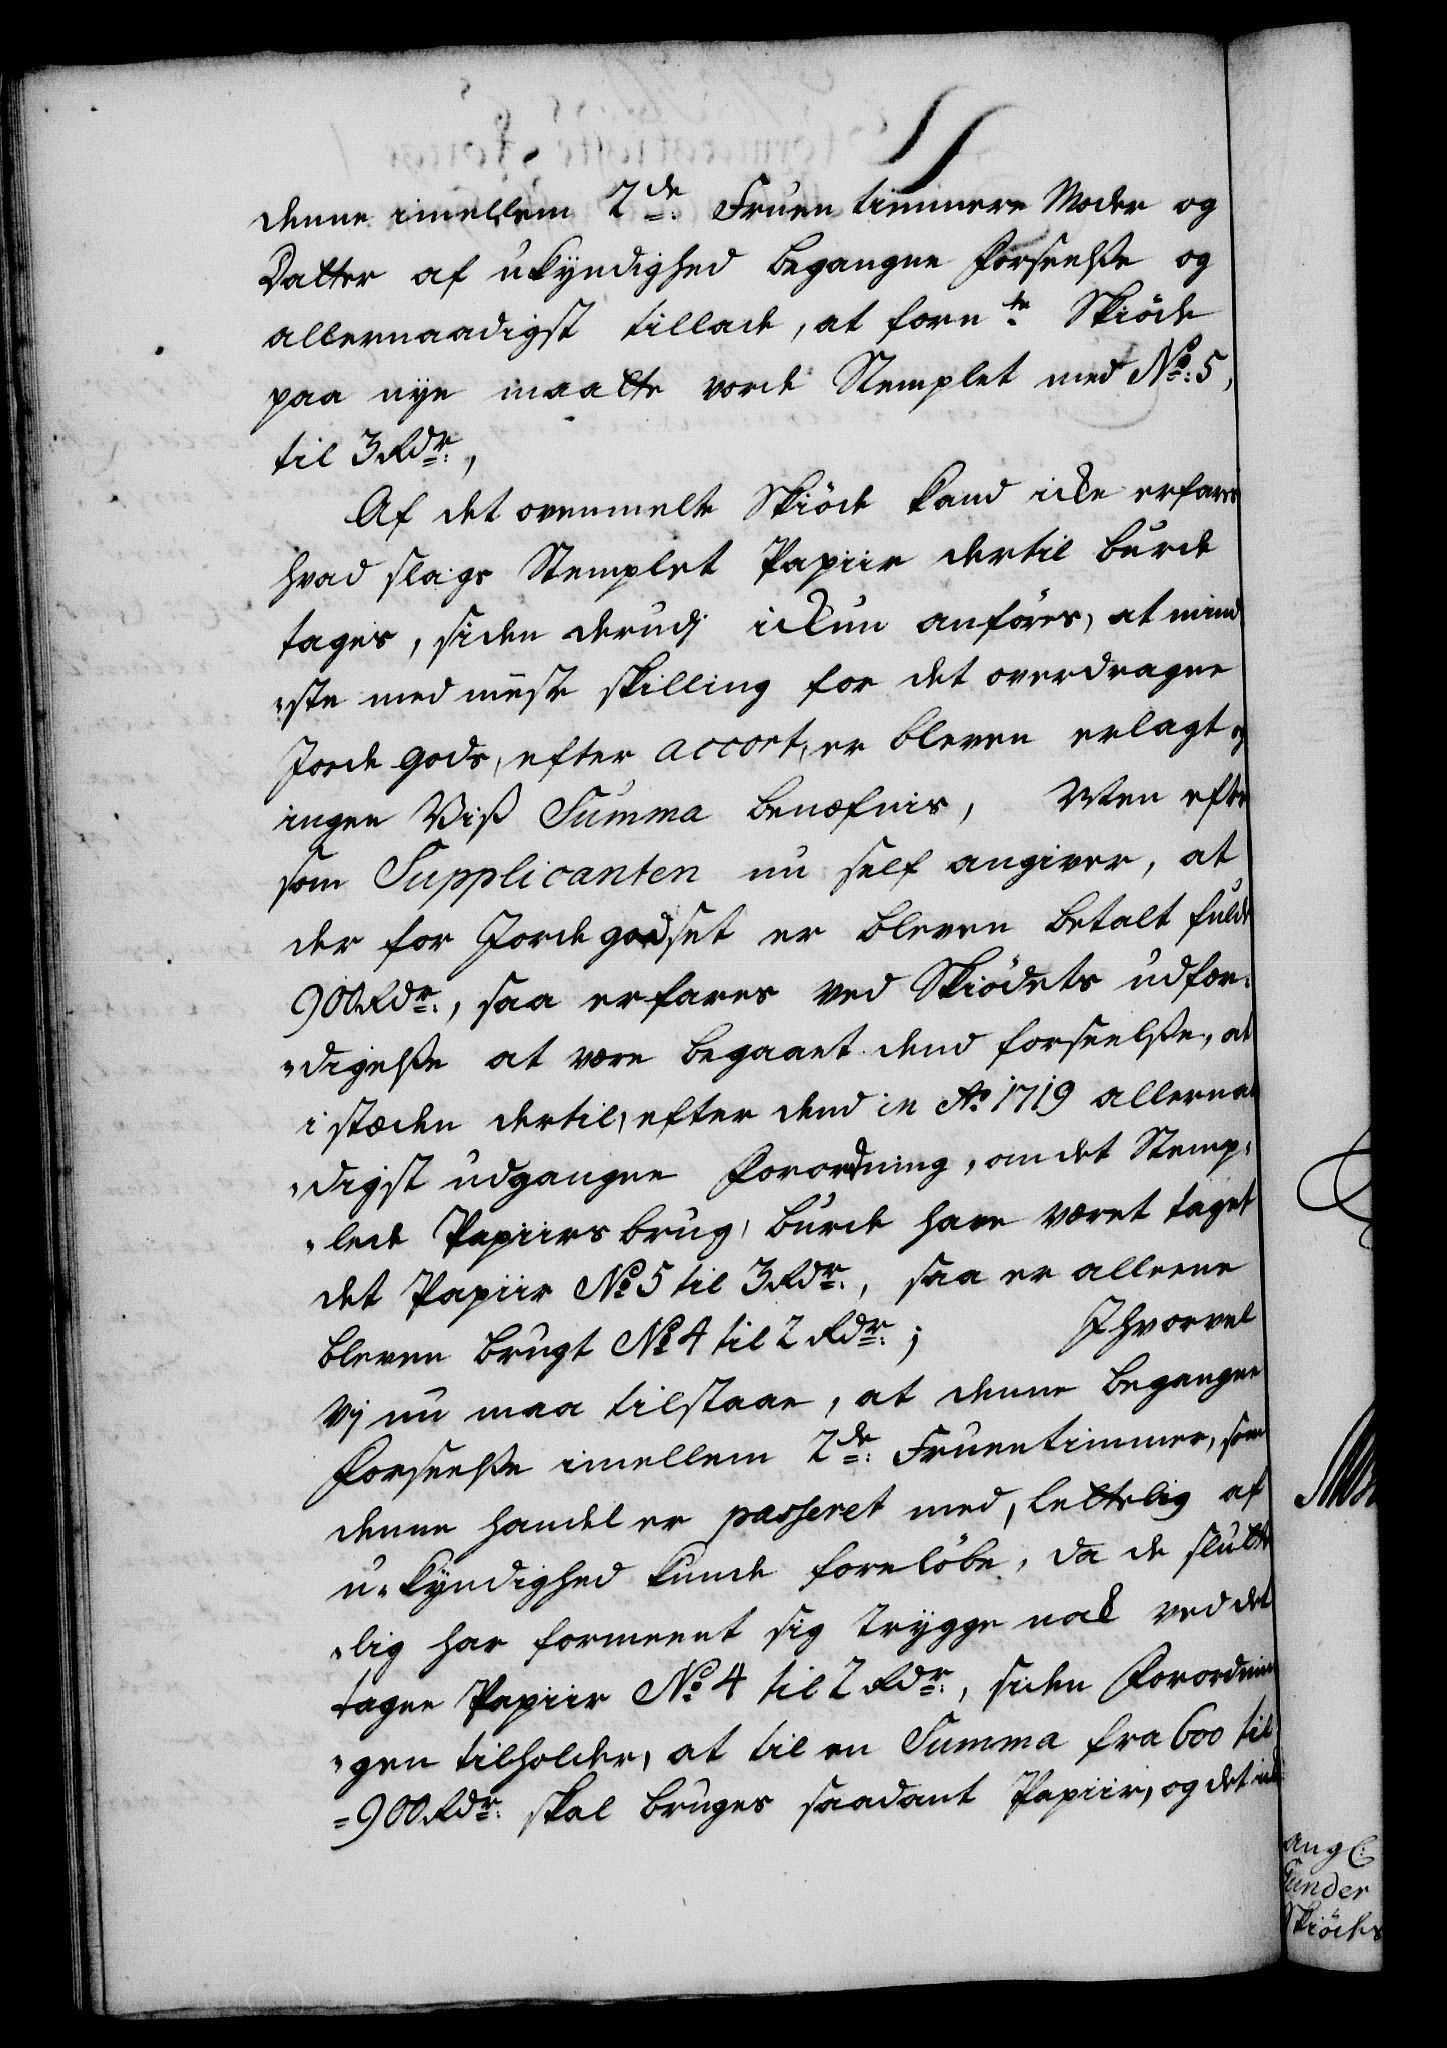 denne imellem 2de: Fruentimmere Moder og
Datter af ukyndighed begangne Forseelße og
allernaadigst tillade, at forn:te Skiöde
paa nye maatte vorde Stemplet med No: 5,
til 3 Rdr:,
Af det ovenmelte Skiöde kand icke erfares
hvad slags Stemplet Papiir dertil burde
tages, siden derudj ickun anföres, at mind
"ste med meste skilling for det overdragne
Jorde gods, efter accort, er bleven erlagt og
ingen Viß Summa benæfnes, Men efter
som Supplicanten nu self angiver, at
der for Jordegodset er bleven betalt fulde
900 Rdr:, saa erfares ved Skiödets udfær:
"digelße at være begaaet dend forseelße, at
i stæden dertil, efter dend in Ao: 1719 allernaa
"digst udgangne Forordning, om det Stemp,
"lede Papiirs brug, burde have været taget
det Papiir No 5 til 3 Rdr:, saa er alleene
bleven brugt No 4 til 2 Rdr:; Ihvorvel
Vj nu maa tilstaae, at denne begangne
Forseelße imellem 2de: Fruentimmer, som
denne handel er passeret med, lettelig af
u-kyndighed kunde foreløbe, da de slutte
"lig har formeent sig trygge nok ved det
tagne Papiir No 4 til 2 Rdr:, siden Forordnin
"gen tilholder, at til en Summa fra 600 til
=900 Rdr: skal bruges saadant Papiir, og det
ang:
Tunder
Skiödes